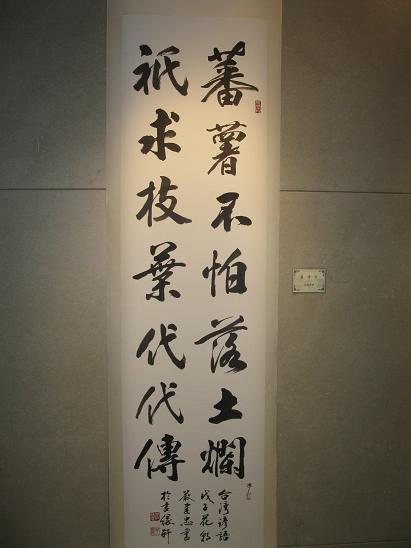 蕃薯不怕落土爛
祇求枝葉代代傳
台灣諺語
戊子花朝
嚴建忠書
於書緣軒